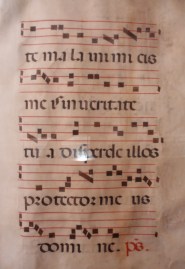 te mala inimicis
meis in veritate
tua disperde illos
protector me us
domi ne. ps.